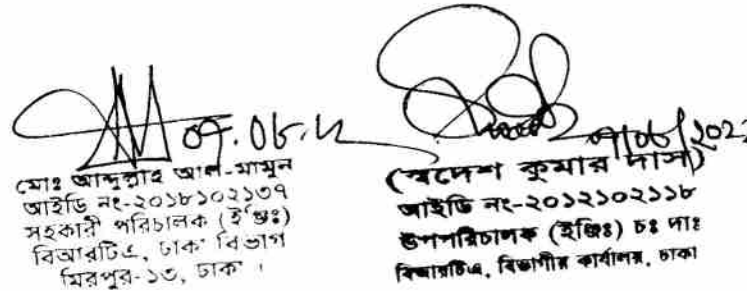 ০৭.০৮.২২
মোঃ আব্দুল্লাহ আল-মামুন
আইডি নং-২০১৮১০২১৩৭
সহকারী পরিচালক (ইঞ্জিঃ)
বিআরটিএ, ঢাকা বিভাগ
মিরপুর-১৩, ঢাকা ।
(স্বদেশ কুমার দাস)
আইডি নং-২০১২১০২১১৮
উপপরিচালক (ইঞ্জিঃ) চঃ দাঃ
বিআরটিএ, বিভাগীয় কার্যালয়, ঢাকা